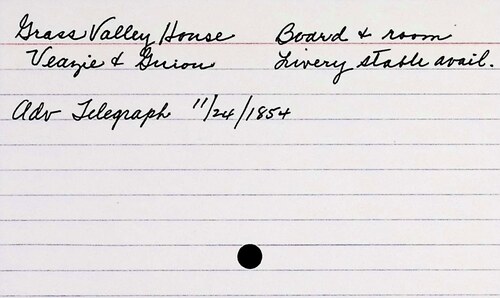 Grass Valley House Board & room
Veazie & Guion Livery stable avail.
Adv Telegraph 11/24/1854